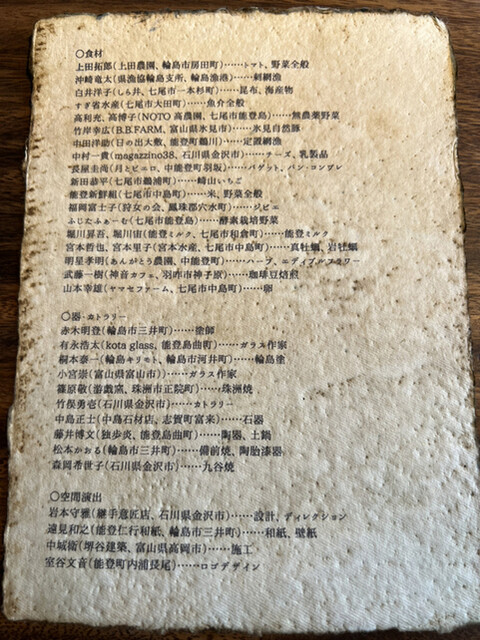 〇食材
上田拓郎(上田農園、輪島市房田町)……トマト、野菜全般
沖崎竜太(県漁協輪島支所、輪島漁港)……刺網漁
白井洋子(しら井、七尾市一本杉町)……昆布、海産物
すぎ省水産(七尾市大田町)……魚介全般
高利光、高博子(NOTO 高農園、七尾市能登島)……無農薬野菜
竹岸幸広(B.B.FARM、富山県氷見市)……氷見自然豚
中田洋助(日の出大敷、能登町鵜川)……定置網漁
中村一貴(magazzino38、石川県金沢市)……チーズ、乳製品
長屋圭尚(月とピエロ、中能登町羽坂)……バゲット、パン・コンプレ
新田恭平(七尾市鵜浦町)……崎山いちご
能登新鮮組(七尾市中島町)……米、野菜全般
福岡富士子(狩女の会、鳳珠郡穴水町)……ジビエ
ふじたふぁーむ(七尾市能登島)……酵素栽培野菜
堀川昇吾、堀川宙(能登ミルク、七尾市和倉町)……能登ミルク
宮本哲也、宮本里子(宮本水産、七尾市中島町)……真牡蠣、岩牡蠣
明星孝明(あんがとう農園、中能登町)……ハーブ、エディブルフラワー
武藤一樹(神音カフェ、羽咋市神子原)……珈琲豆焙煎
山本幸雄(ヤマセファーム、七尾市中島町)……卵
〇器・カトラリー
赤木明登(輪島市三井町)……塗師
有永浩太(kota glass、能登島曲町)……ガラス作家
桐本泰一(輪島キリモト、輪島市河井町)……輪島塗
小宮崇(富山県富山市))……ガラス作家
篠原敬(游戯窯、珠洲市正院町)……珠洲焼
竹俣勇壱(石川県金沢市)……カトラリー
中島正士(中島石材店、志賀町富来)……石器
藤井博文(独歩炎、能登島曲町)……陶器、土鍋
松本かおる(輪島市三井町)……備前焼、陶胎漆器
森岡希世子(石川県金沢市)……九谷焼
〇空間演出
岩本守雅(継手意匠店、石川県金沢市)……設計、ディレクション
遠見和之(能登仁行和紙、輪島市三井町)……和紙、壁紙
中城衛(堺谷建築、富山県高岡市)……施工
室谷文音(能登町内浦長尾)……ロゴデザイン